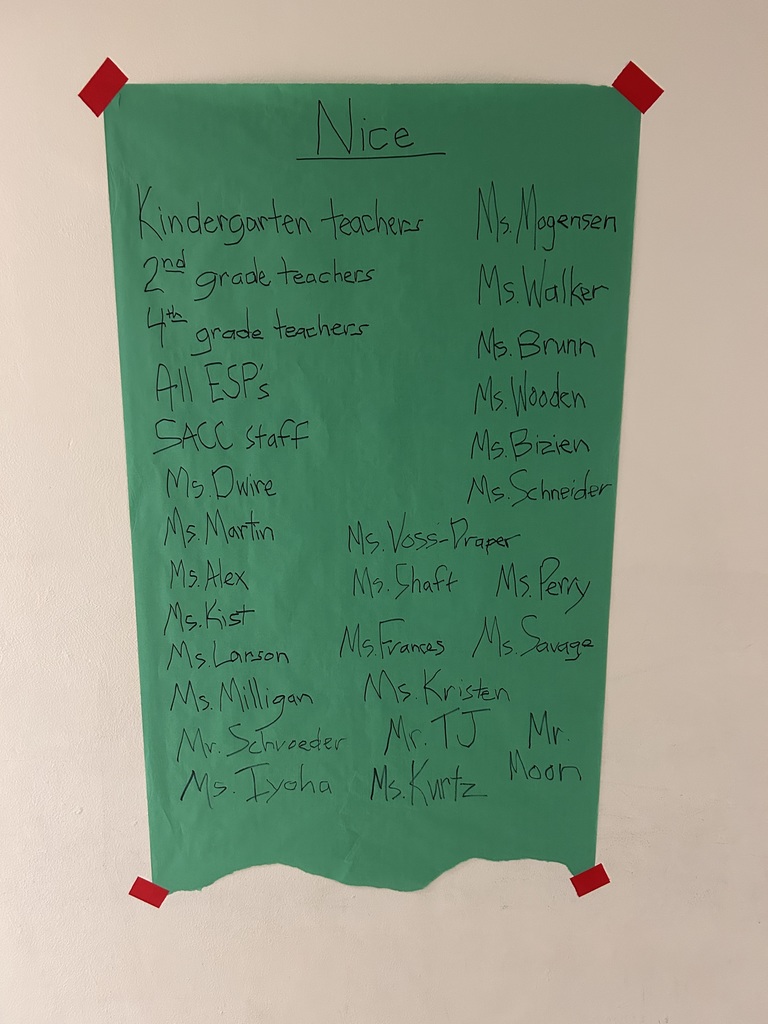 Nice
Kindergarten teachers
2nd grade teachers
4th grade teachers
All ESP's
SACC staff
Ms. Dwire
Ms. Martin
Ms. Alex
Ms. Kist
Ms. Larson
Ms. Milligan
Mr. Schroeder
Ms. Iyoha
Ms. Mogensen
Ms. Walker
Ms. Brunn
Ms. Wooden
Ms. Bizien
Ms. Schneider
Ms. Voss-Draper
Ms. Shaft Ms. Perry
Ms. Frances Ms. Savage
Ms. Kristen
Mr. TJ Mr.
Moon
Ms. Kurtz